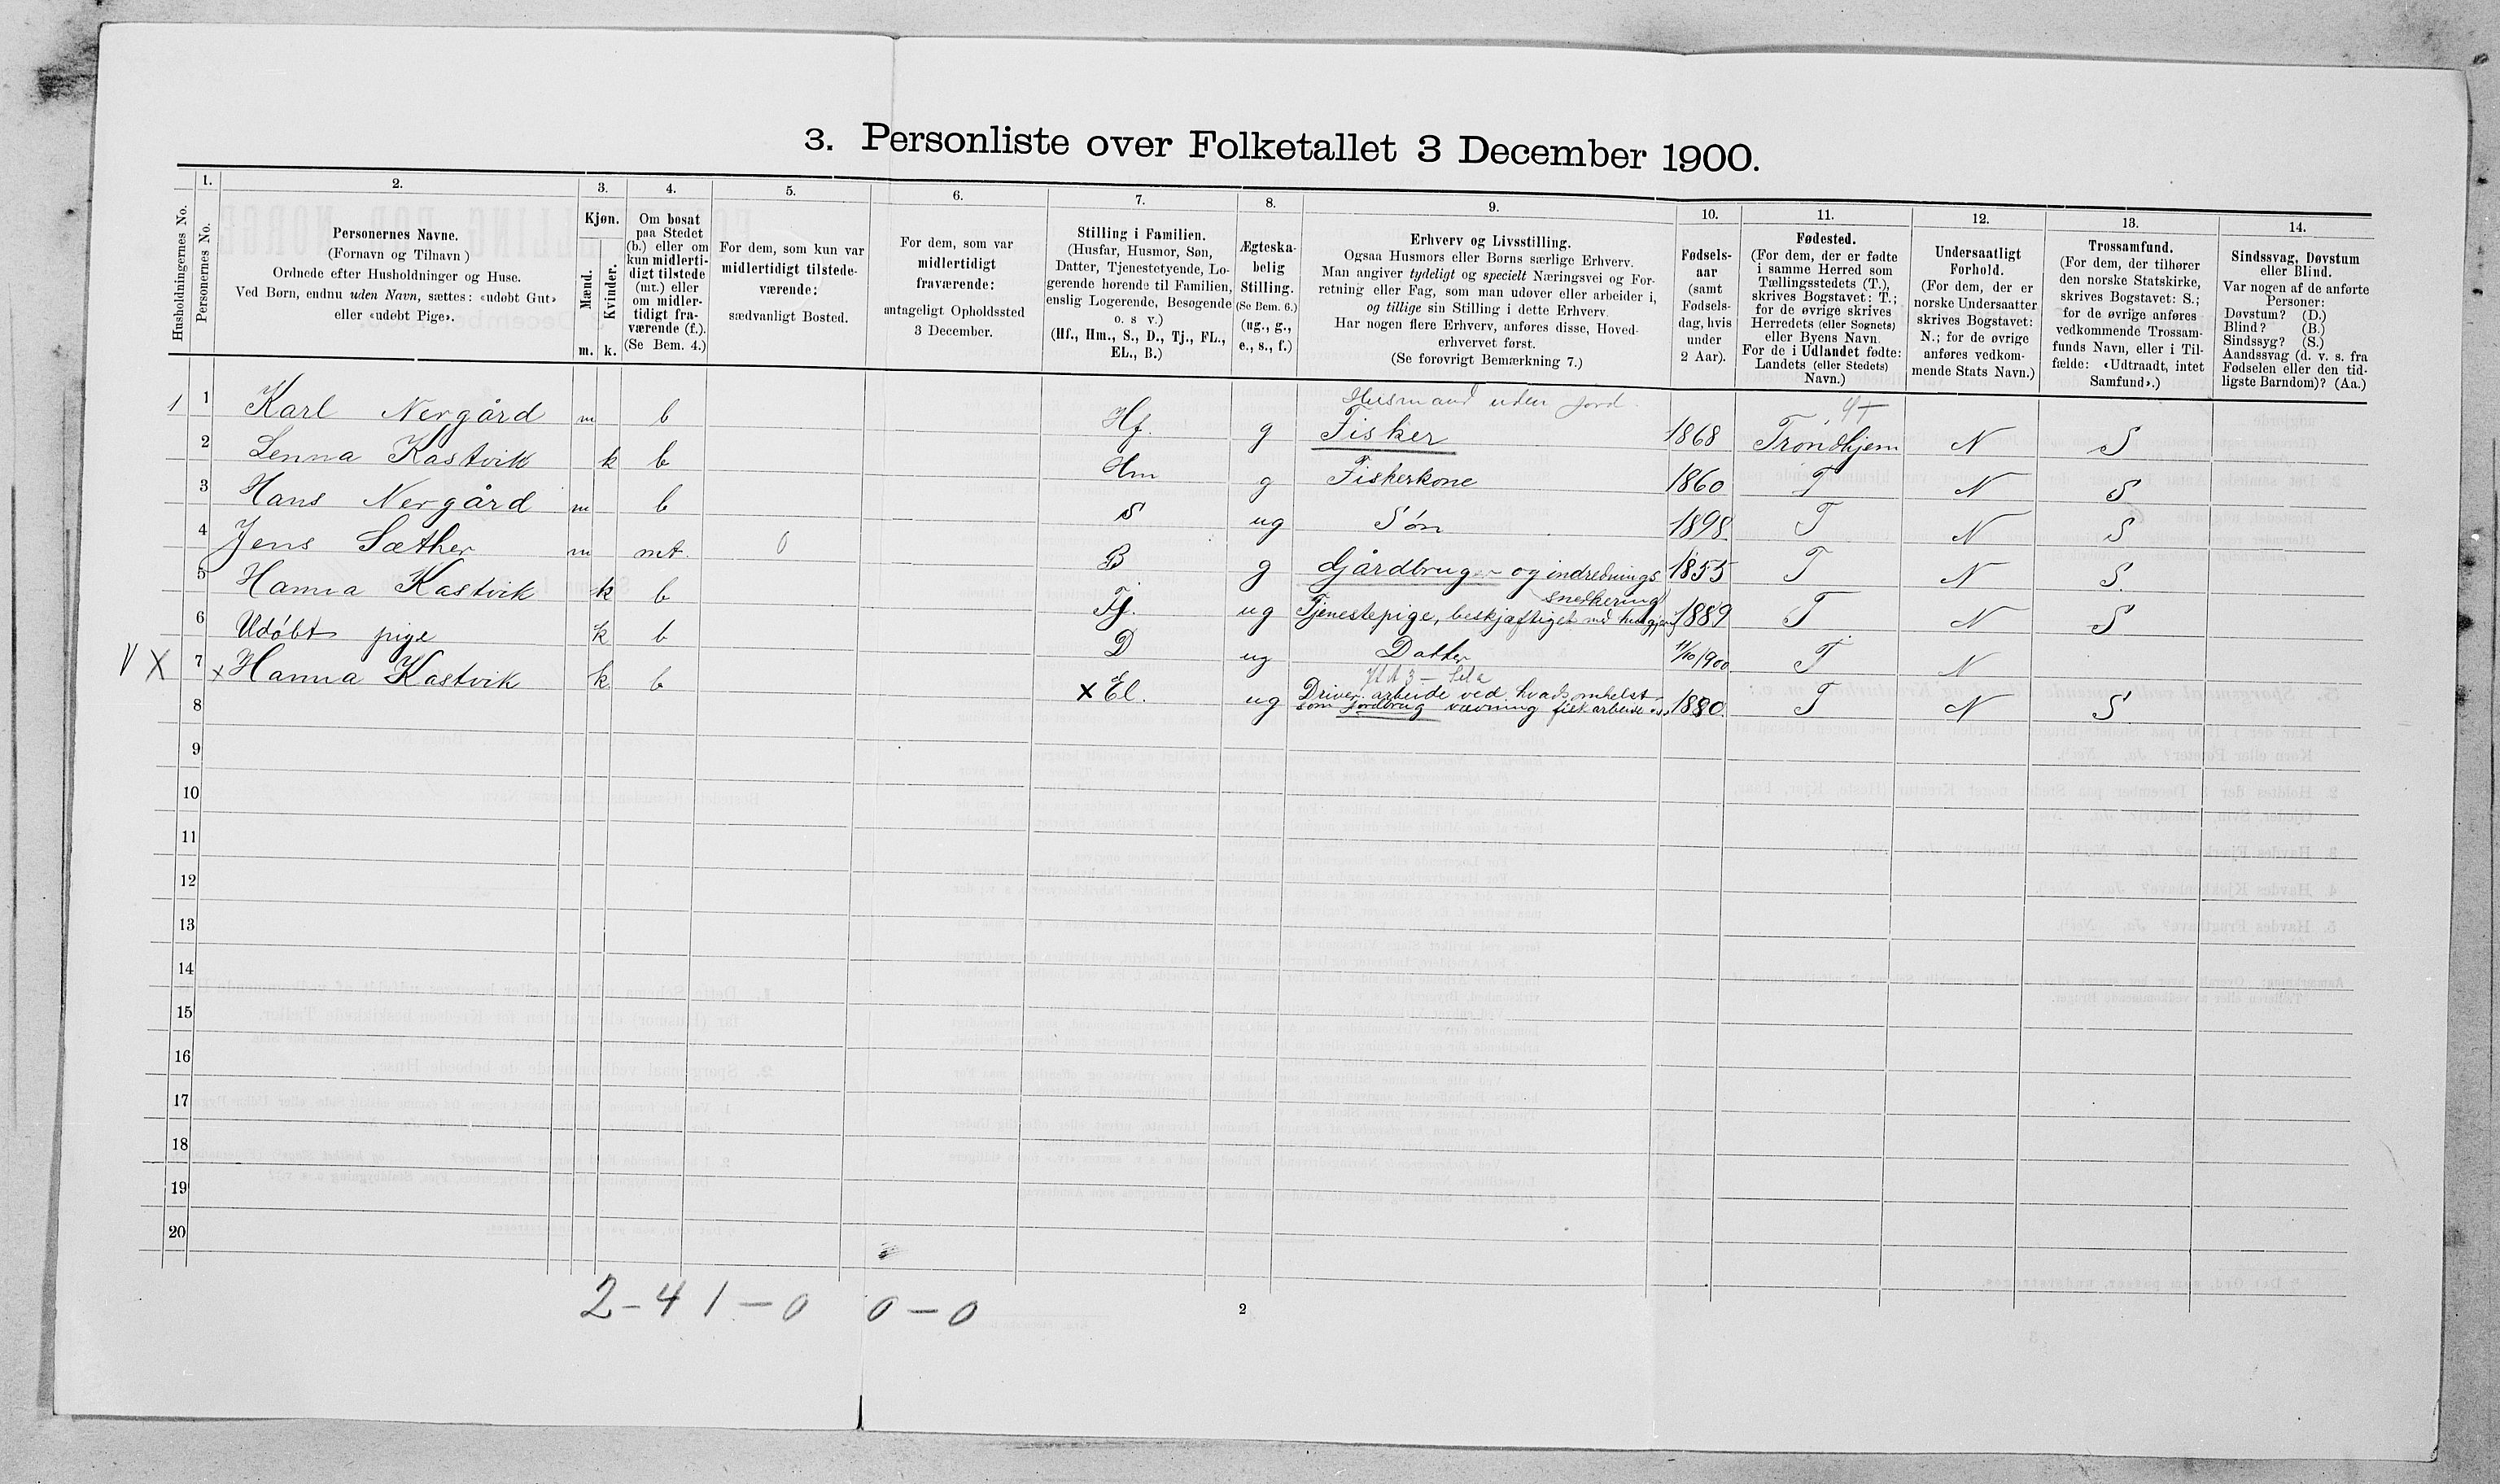 3. Personliste over Folketallet 3 December 1900.
Husholdningernes No.
1.
Personernes No.
2.
Personernes Navne.
(Fornavn og Tilnavn)
Ordnede efter Husholdninger og Huse.
Ved Børn, endnu uden Navn, sættes: «udøbt Gut»
eller «udøbt Pige».
3.
Kjøn.
Mænd.
Kvinder.
m. k.
4.
Om bosat
paa Stedet
(b.) eller om
kun midlerti-
digt tilstede
(mt.) eller
om midler-
tidigt fra-
værende (f.).
(Se Bem. 4.)
5.
For dem, som kun var
midlertidigt tilstede-
værende:
sædvanligt Bosted.
6.
For dem, som var
midlertidigt
fraværende:
antageligt Opholdssted
3 December.
7.
Stilling i Familien.
(Husfar, Husmor, Søn,
Datter, Tjenestetyende, Lo-
gerende hørende til Familien,
enslig Logerende, Besøgende
o. s v.)
(Hf., Hm., S., D., Tj., FL.,
EL., B.)
8.
Ægteska-
belig
Stilling.
(Se Bem. 6.)
(ug., g.,
e., s., f.)
9.
Erhverv og Livsstilling.
Ogsaa Husmors eller Børns særlige Erhverv.
Man angiver tydeligt og specielt Næringsvei og For-
retning eller Fag, som man udøver eller arbeider i,
og tillige sin Stilling i dette Erhverv.
Har nogen flere Erhverv, anføres disse, Hoved-
erhvervet først.
(Se forøvrigt Bemærkning 7.)
10.
Fødsels-
aar
(samt
Fødsels-
dag, hvis
under
2 Aar).
11.
Fødested.
(For dem, der er fødte
i samme Herred som
Tællingsstedets (T.),
skrives Bogstavet: T.;
for de øvrige skrives
Herredets (eller Sognets)
eller Byens Navn.
For de i Udlandet fødte:
Landets (eller Stedets)
Navn.)
12.
Undersaatligt
Forhold.
(For dem, der er
norske Undersaatter
skrives Bogstavet:
N.; for de øvrige
anføres vedkom-
mende Stats Navn.)
13.
Trossamfund.
(For dem, der tilhører
den norske Statskirke,
skrives Bogstavet: S.;
for de øvrige anføres
vedkommende Trossam-
funds Navn, eller i Til-
fælde: «Udtraadt, intet
Samfund».)
14.
Sindssvag, Døvstum
eller Blind.
Var nogen af de anførte
Personer:
Døvstum? (D.)
Blind? (B.)
Sindssyg? (S.)
Aandssvag (d. v. s. fra
Fødselen eller den tid-
ligste Barndom)? (Aa.)
Husmand uden jord
1 1 Karl Nergård m b Hf. g Fisker 1868 Trondhjem N S
2 Lenna Kastvik k b Hm g Fiskerkone 1860 T N S
3 Hans Nergård m b S ug Søn 1898 T N S
4 Jens Sæther m mt. 0 B g Gårdbruger og indrednings 1855 T N S.
snedkering
5 Hanna Kastvik k b Tj. ug Tjenestepige, beskjæftiget md husgjern 1889 T N S
6 Udøbt pige k b D ug Datter 11/10 1900 T N
V X 7 x Hanna Kastvik k b x El. ug Driver arbeide ved hvadsomhelst 1880 T N S
som jordbrug vævning fiskarbeide
8
9
10
11
12
13
14
15
16
17
18
19
20
2-4 1-0 0-0
2